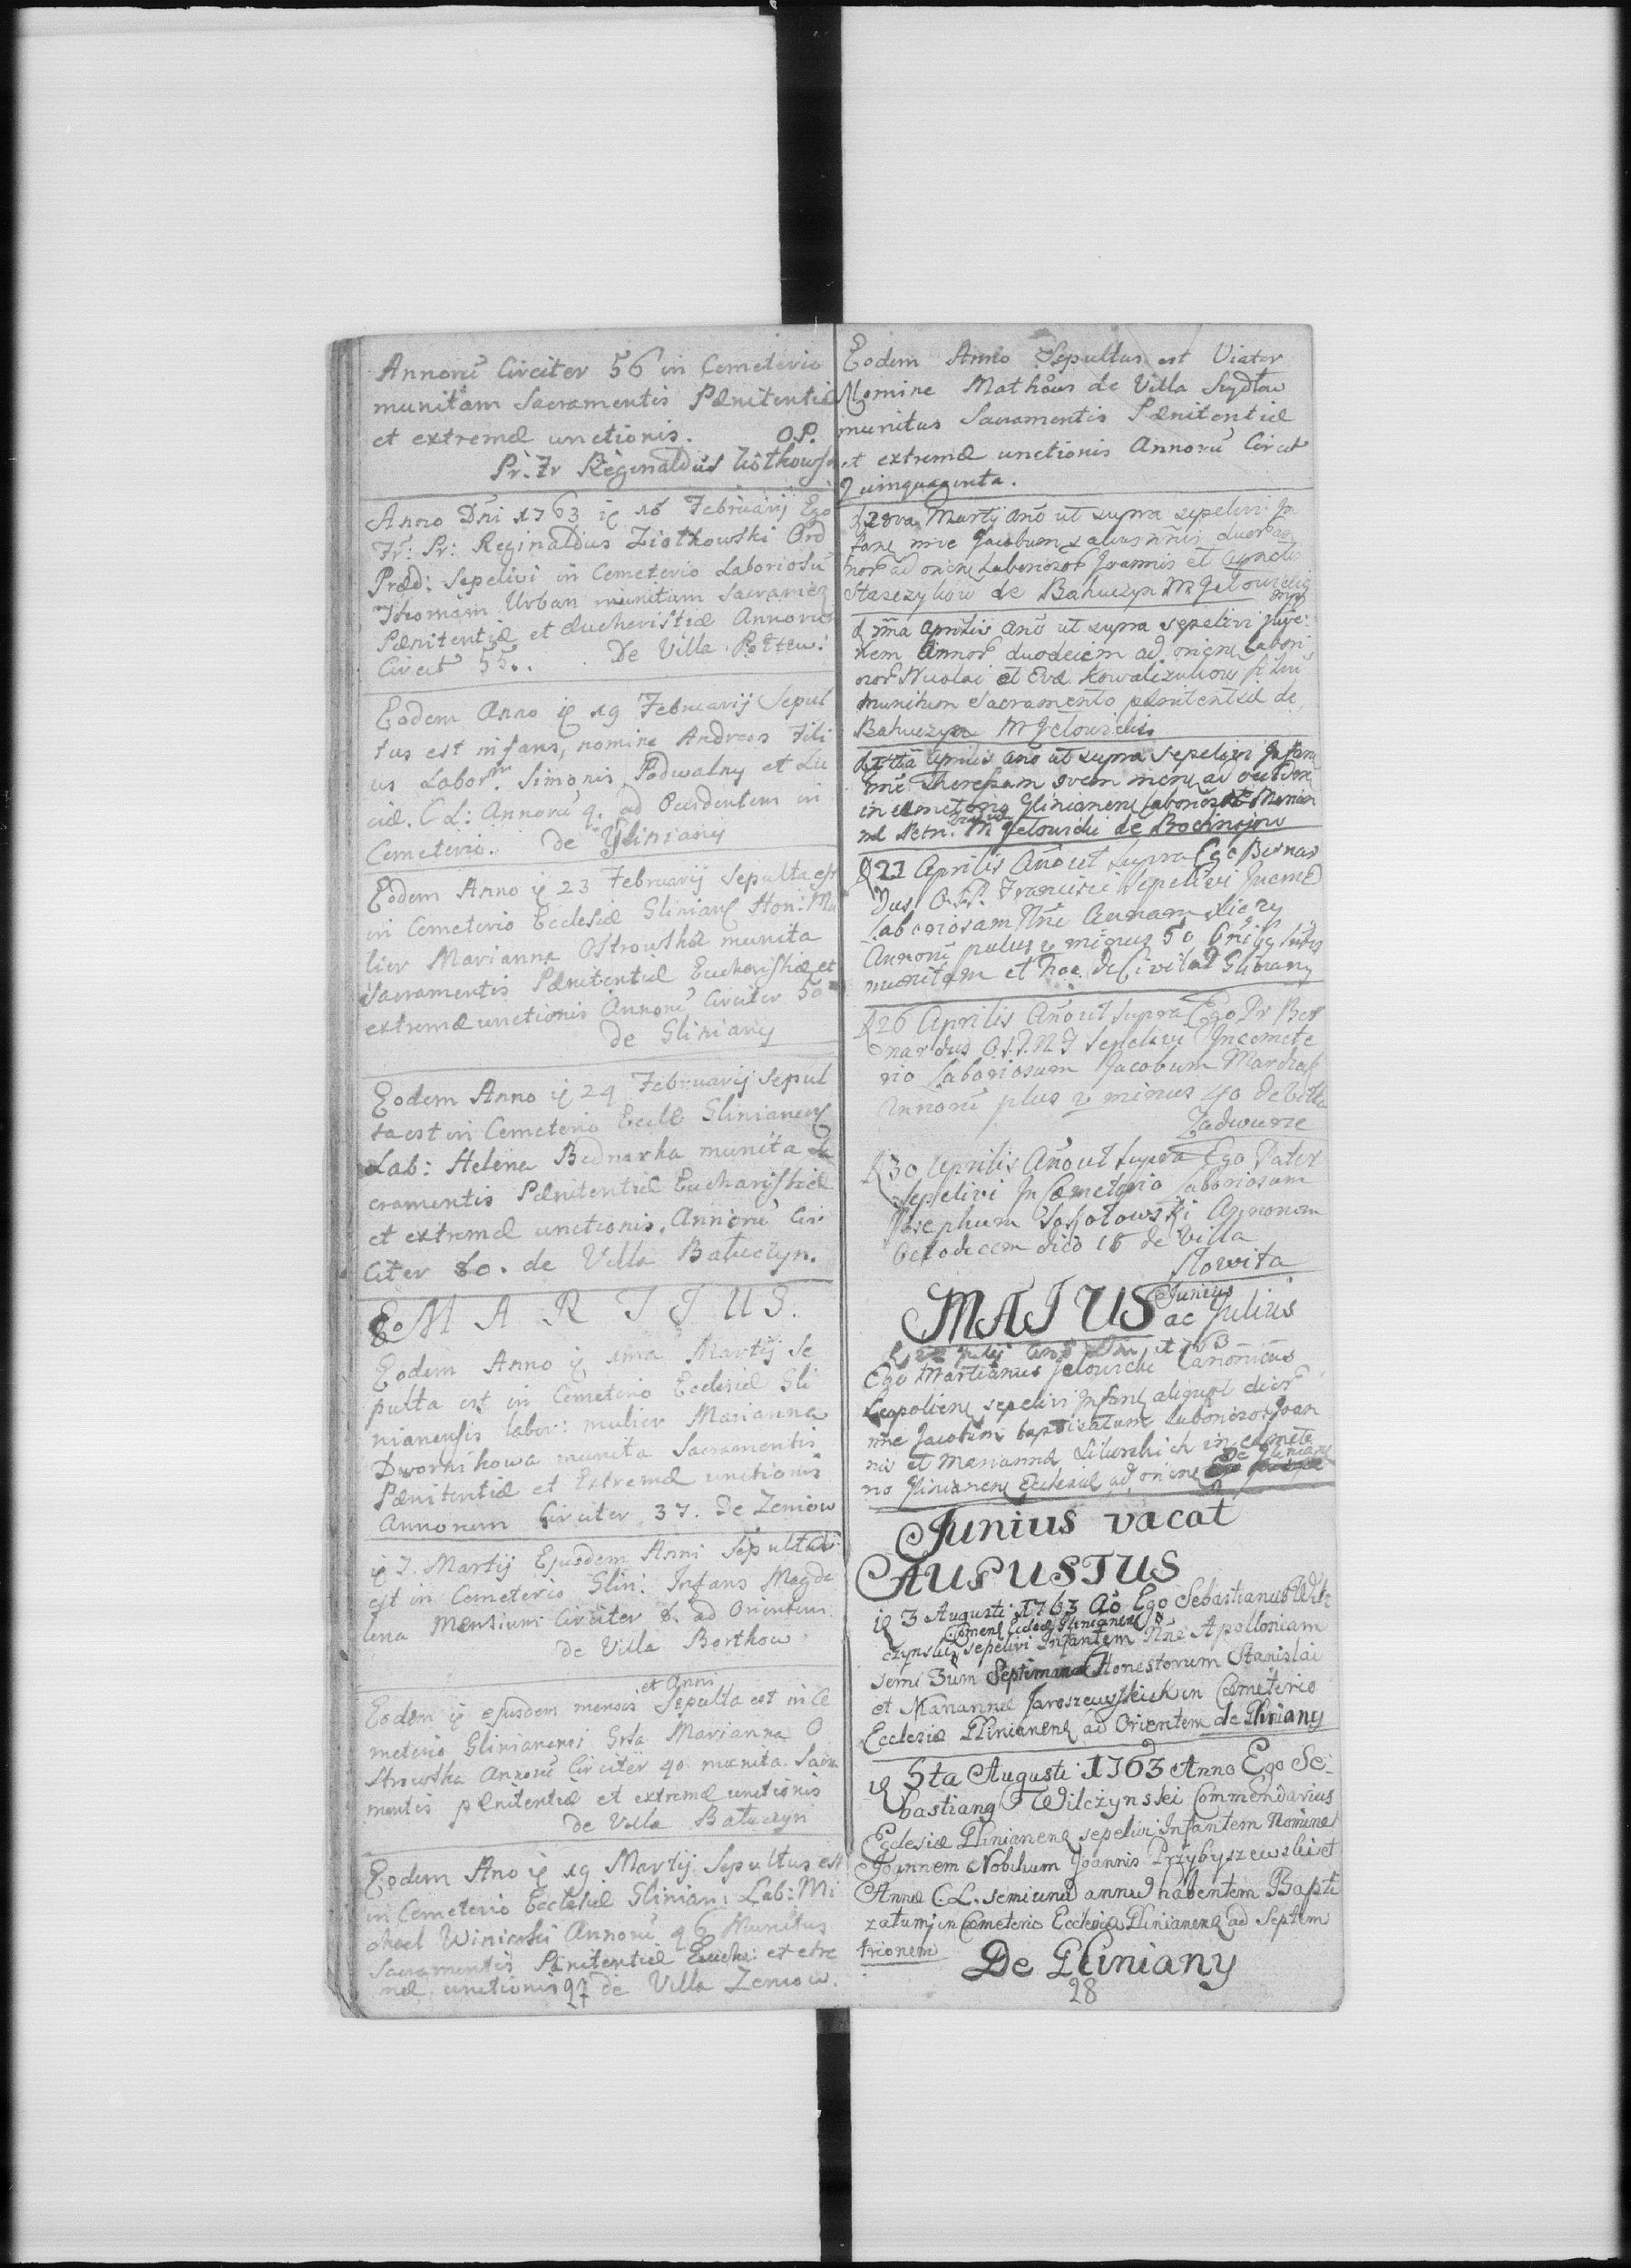 Annorū Circiter 56 in Cemeterio
munitam Sacramentis Pænitentiæ
et extremæ unctionis. O.P.
Pr. Fr Reginaldus Ziółkowski
Anno Dñi 1763 ię 16 Februarij Ego
Fr: Pr: Reginaldus Ziołkowski Ord
Præd: Sepelivi in Cemeterio Laboriosū
Thomam Urban munitum Sacramen
Pænitentiæ et Eucheristiæ Annorū
Circit 55. De Villa Połtew.
Eodem Anno ię 19 Februarij Sepul
tus est infans, nomine Andreas Fili
us Labor. Simonis Podwalny et Lu
ciæ. C L: Annorū 9. ad Occidentem in
Cemeterio. de Gliniany
Eodem Anno ię 23 Februarij Sepulta est
in Cemeterio Ecclesiæ Glinians Hon: Mu
lier Marianna Ostrowska munita
Sacramentis Pænitentiæ Eucheristiæ et
extremæ unctionis Annorū Circiter 50
de Gliniany
Eodem Anno ię 24 Februarij Sepul
ta est in Cemeterio Eccle Glinianens
Lab: Helena Bednarka munita Sa
cramentis Pænitentiæ Eucharistiæ
et extremæ unctionis. Annorū Cir
citer 80. de Villa Batuczyn.
M A R T I U S.
Eodem Anno ię 1ma Martij Se
pulta est in Cemeterio Ecclesiæ Gli
nianensis labor: mulier Marianna
Dwornikowa munita Sacramentis
Pænitentiæ et Extremæ unctionis
Annorum Circiter 37. De Zeniow
ię 7. Martij Ejusdem Anni Sepulta
est in Cemeterio Glin: Infans Magda
lena Mensium Circiter 8. ad Orientem
de Villa Borthow
et Anni
Eodem ię ejusdem mensis Sepulta est in Ce
meterio Glinianensi Marianna O
strowska Annorū Circiter 40 munita Sacra
mentis pænitentiæ et extremæ unctionis
de Villa Batuczyn
Eodem Ano ię 19 Martij Sepultus est
in Cemeterio Ecclesiæ Glinian: Lab: Mi
chael Winicski Annorū 46 Munitus
Sacramentis Pænitentiæ Euch: et etre
mæ unctionis de Villa Zeniow.
27
Eodem Anno Sepultus est Viator
Nomine Mathæus de Villa
munitus Sacramentis Pænitentiæ
et extremæ unctionis Annorū Circit
Quinquaginta.
28va Martij anō ut supra sepelivi In
fans nne Jacobum duor an
nor ad orien Laborioror Joannis et Agnetis
Staszczykow de Bahuczyn M Jełowicki
1ma Aprilis anō ut supra sepelivi juve:
nem Annor duodeicim ad orien labori
oror Nicolai et Evæ Kowalczukow filiū
munitum Sacramento pænitentiæ de
Bahuczyn M Jełowicki
Aprilis ano ut supra sepelivi Infan
nne Theresam
in cemeterio Glinianens
M Jełowicki de
21 Aprilis Anō ut supra Ego Bernar
dus O.S.P. Francisci Sepelivi Incme
Laboriosam Nñe Annam
Annorū pulus v minus 50
munitam et hoc de Civitat Gliniany
26 Aprilis Anō ut supra Ego Pr Ber
nardus O.S.P.N.F Sepelivi Incemete
rio Laboriosum Jacobum
Annorū plus v minus 40 de Villa
Zadwurze
30 Aprilis Anō ut supra Ego Pater
sepelivi In Cæmeterio Laboriosum
Josephum Sokołowski Annorum
Octodecem dico 18 de Villa
Słowita
MAJUS Junius
ac Julius
Julij 1763
Ego Martianus Jełowicki Canonicus
Leopoliens sepelivi Infans aliquot dier
nne Jacobum baptizatum Laborioror Joan
nis et Mariannæ in cemete
rio Glinianens Ecclesiæ ad orien De Gliniany
Junius vacat
AUGUSTUS
ię 3 Augusti 1763 Aō Ego Sebastianus Wil
Comens Eccleæ Glinianens
czynski sepelivi Infantem Nñe Apolloniam
semi 3um Septimanæ Honestorum Stanislai
et Mariannæ Jaroszewskich in Cæmeterio
Ecclesiæ Glinianens ad Orientem de Gliniany
ię 5ta Augusti 1763 Anno Ego Se:
bastiang Wilczynski Commendarius
Ecclesiæ Glinianens sepelivi Infantem Nomine
Joannem Nobilium Joannis Przybyszewski et
Annæ C.L. semiunū annū habentem Bapti
zatum in Cæmeterio Ecclesiæ Glinianens ad Septem
trionem De Gliniany
28